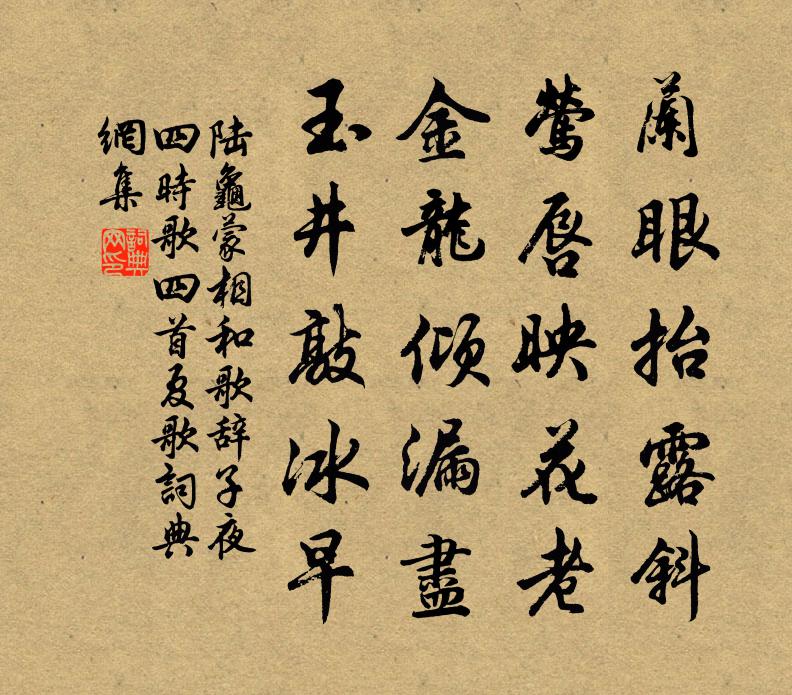 蘭眼抬露斜
鶯唇映花老
金龍傾漏盡
玉井敲冰早
陆龜蒙相和歌辞子夜
四時歌四首夏歌詞典
網集
詞典
网印